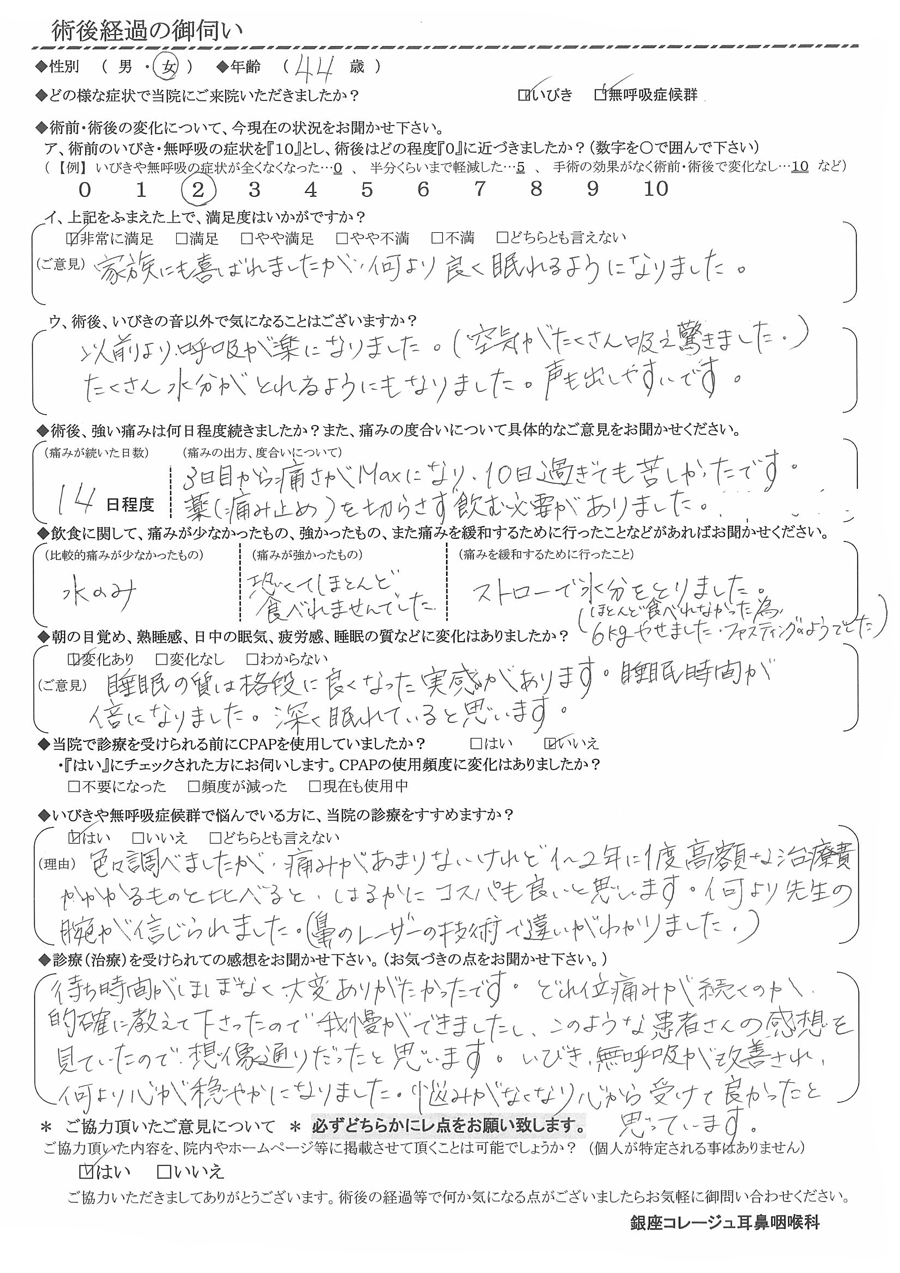 術後経過の御伺い
◆性別 （ 男 ・ 女 ） ◆年齢 （ 44 歳 ）
◆どの様な症状で当院にご来院いただきましたか？ ☑いびき ☑無呼吸症候群
◆術前・術後の変化について、今現在の状況をお聞かせ下さい。
ア、術前のいびき・無呼吸の症状を『10』とし、術後はどの程度『0』に近づきましたか？（数字を○で囲んで下さい）
（【例】 いびきや無呼吸の症状が全くなくなった…0 、 半分くらいまで軽減した…5 、 手術の効果がなく術前・術後で変化なし…10 など）
0 1 2 3 4 5 6 7 8 9 10
イ、上記をふまえた上で、満足度はいかがですか？
☑非常に満足 □満足 □やや満足 □やや不満 □不満 □どちらとも言えない
（ご意見） 家族にも喜ばれましたが、何より良く眠れるようになりました。
ウ、術後、いびきの音以外で気になることはございますか？
以前より呼吸が楽になりました。（空気がたくさん吸え驚きました。）
たくさん水分がとれるようにもなりました。声も出しやすいです。
◆術後、強い痛みは何日程度続きましたか？また、痛みの度合いについて具体的なご意見をお聞かせください。
（痛みが続いた日数） （痛みの出方、度合いについて）
3日目から痛さがMaxになり、10日過ぎても苦しかったです。
14 日程度 薬（痛み止め）を切らさず飲む必要がありました。
◆飲食に関して、痛みが少なかったもの、強かったもの、また痛みを緩和するために行ったことなどがあればお聞かせください。
（比較的痛みが少なかったもの） （痛みが強かったもの） （痛みを緩和するために行ったこと）
水のみ 恐くてほとんど ストローで水分をとりました。
食べれませんでした （ほとんど食べれなかった為
6kgやせました。ファスティングのようでした）
◆朝の目覚め、熟睡感、日中の眠気、疲労感、睡眠の質などに変化はありましたか？
☑変化あり □変化なし □わからない
（ご意見） 睡眠の質は格段に良くなった実感があります。睡眠時間が
倍になりました。深く眠れていると思います。
◆当院で診療を受けられる前にCPAPを使用していましたか？ □はい ☑いいえ
・『はい』にチェックされた方にお伺いします。CPAPの使用頻度に変化はありましたか？
□不要になった □頻度が減った □現在も使用中
◆いびきや無呼吸症候群で悩んでいる方に、当院の診療をすすめますか？
☑はい □いいえ □どちらとも言えない
（理由） 色々調べましたが、痛みがあまりないけれど1〜2年に1度高額な治療費
がかかるものと比べると、はるかにコスパも良いと思います。何より先生の
腕が信じられました。（鼻のレーザーの技術で違いがわかりました。）
◆診療（治療）を受けられての感想をお聞かせ下さい。（お気づきの点をお聞かせ下さい。）
待ち時間がほぼなく大変ありがたかったです。どれ位痛みが続くのか、
的確に教えて下さったので我慢ができましたし、このような患者さんの感想を
見ていたので、想像通りだったと思います。いびき、無呼吸が改善され、
何より心が穏やかになりました。悩みがなくなり心から受けて良かったと
思っています。
＊ ご協力頂いたご意見について ＊ 必ずどちらかにレ点をお願い致します。
ご協力頂いた内容を、院内やホームページ等に掲載させて頂くことは可能でしょうか？（個人が特定される事はありません）
☑はい □いいえ
ご協力いただきましてありがとうございます。術後の経過等で何か気になる点がございましたらお気軽に御問い合わせください。
銀座コレージュ耳鼻咽喉科